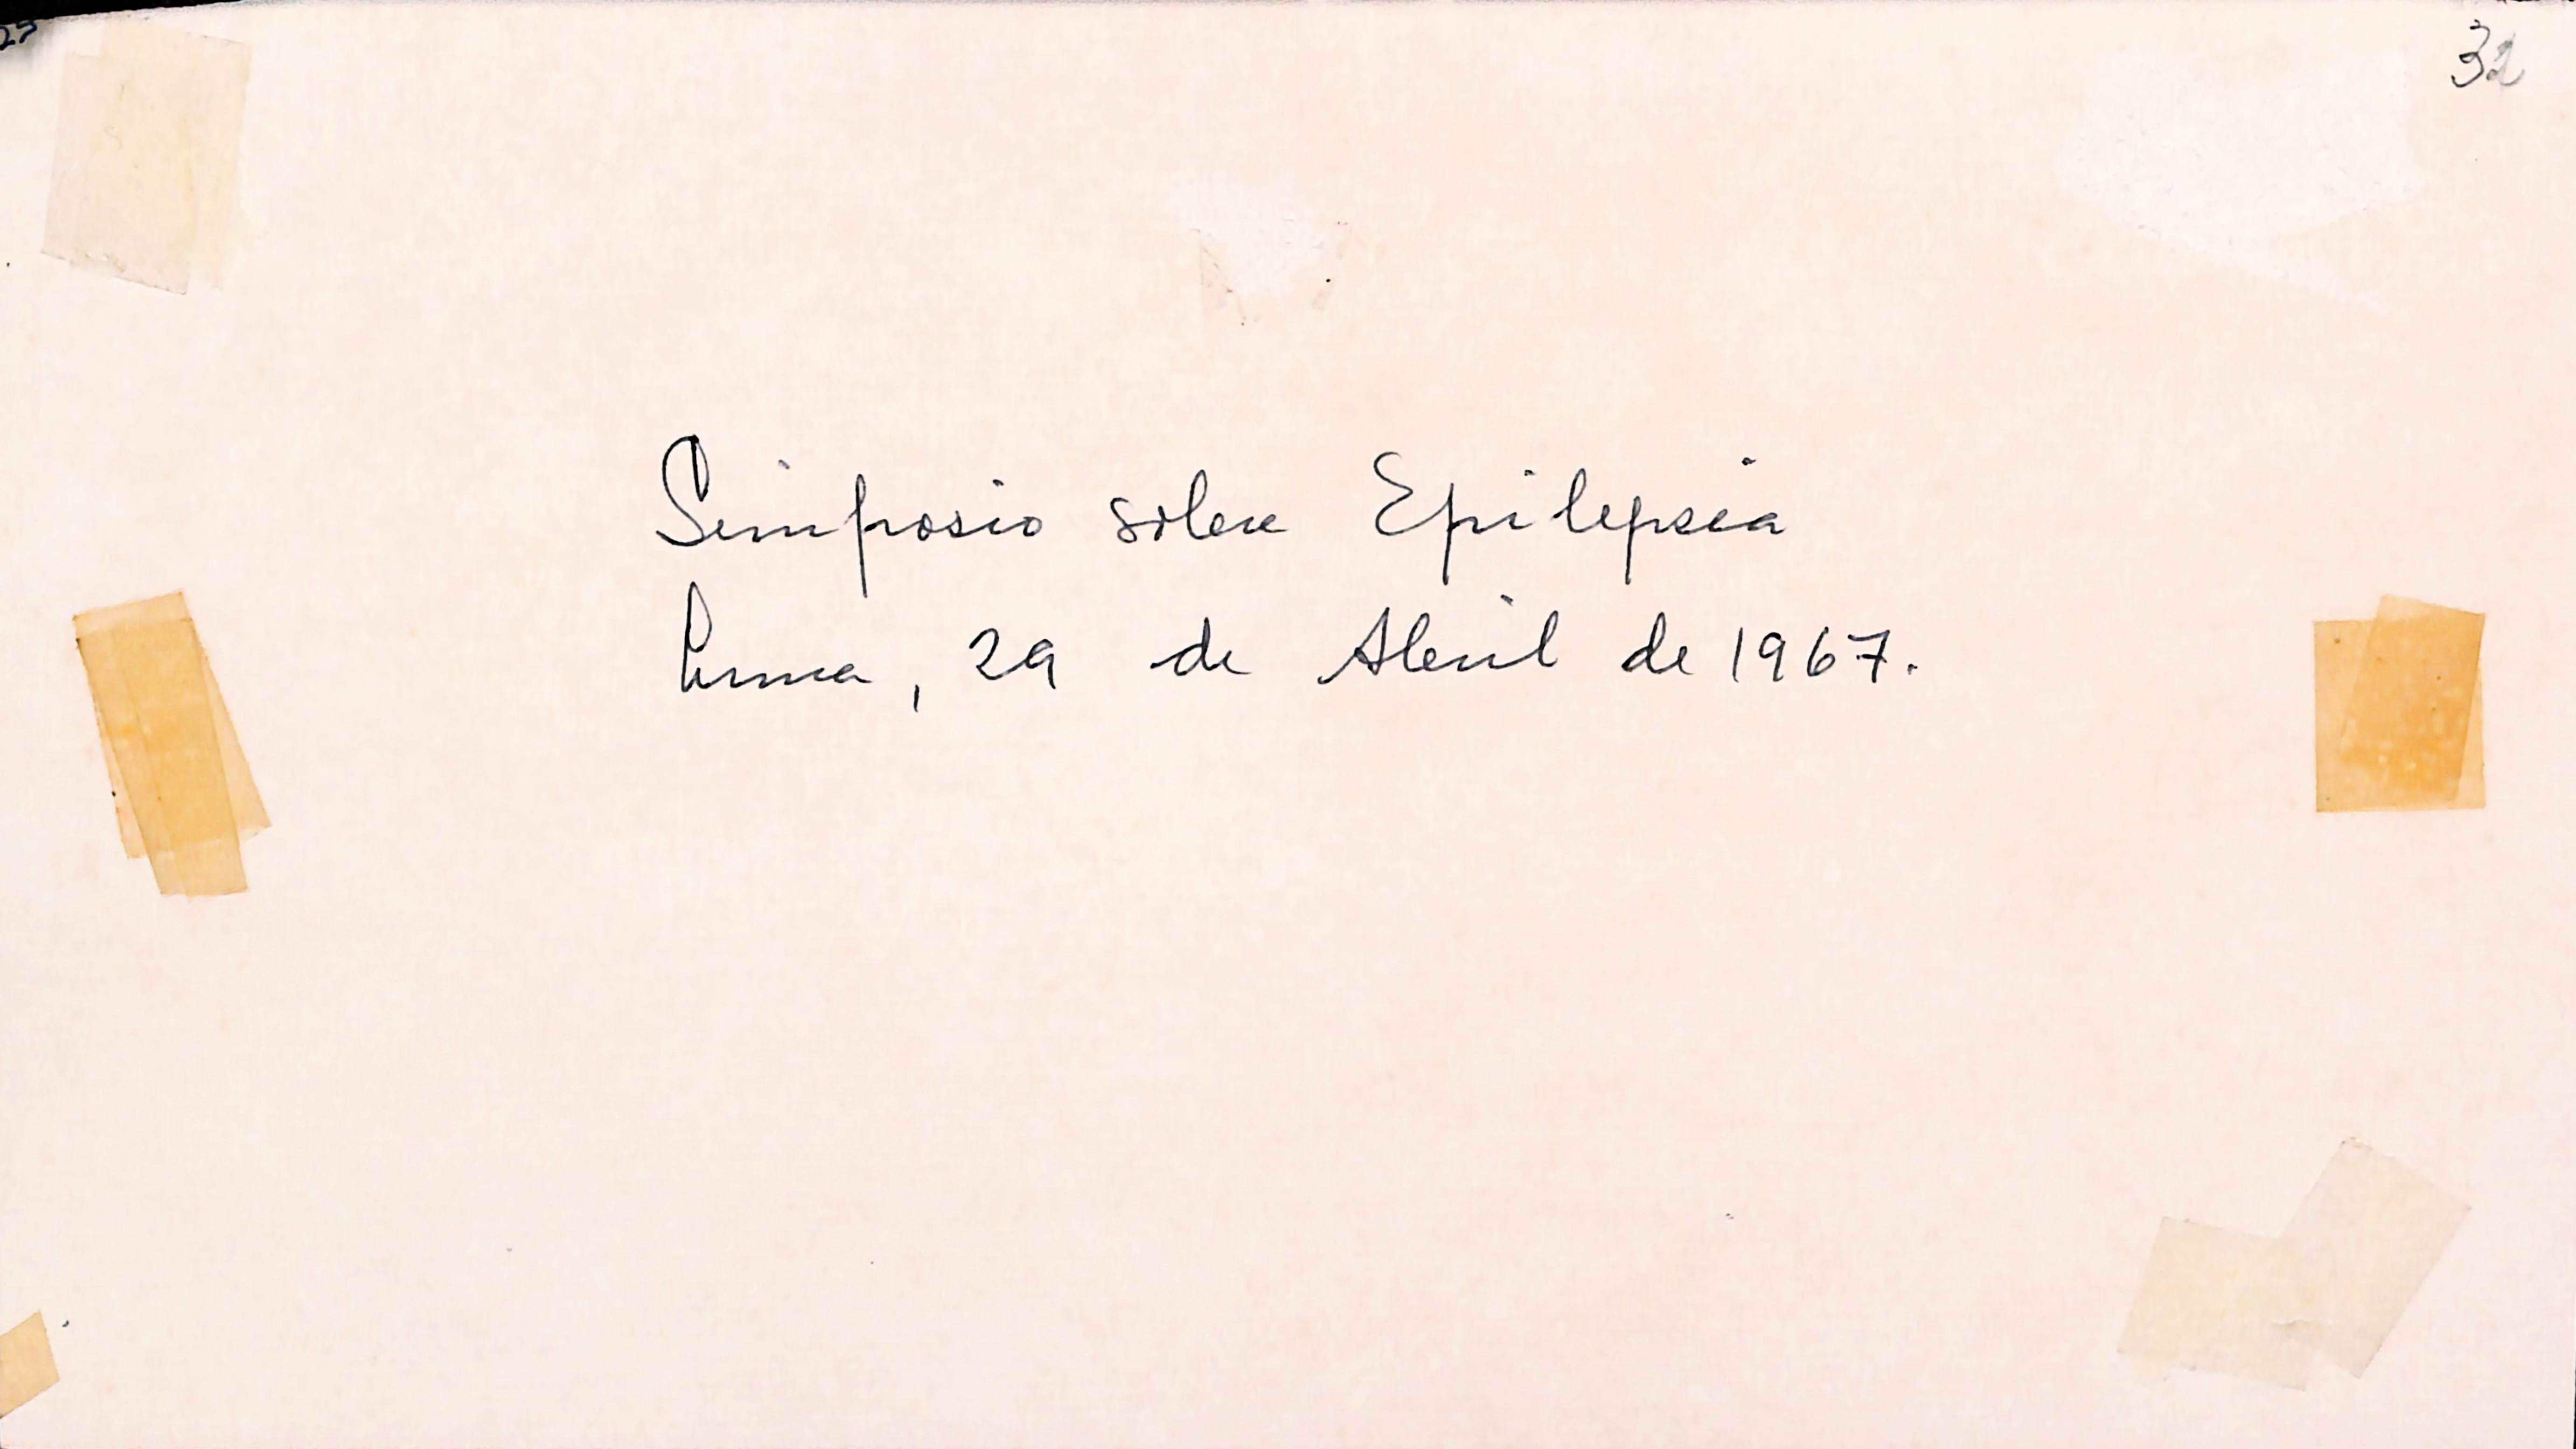 32
Simposio sobre Epilepsia
Lima, 29 de Abril de 1967.